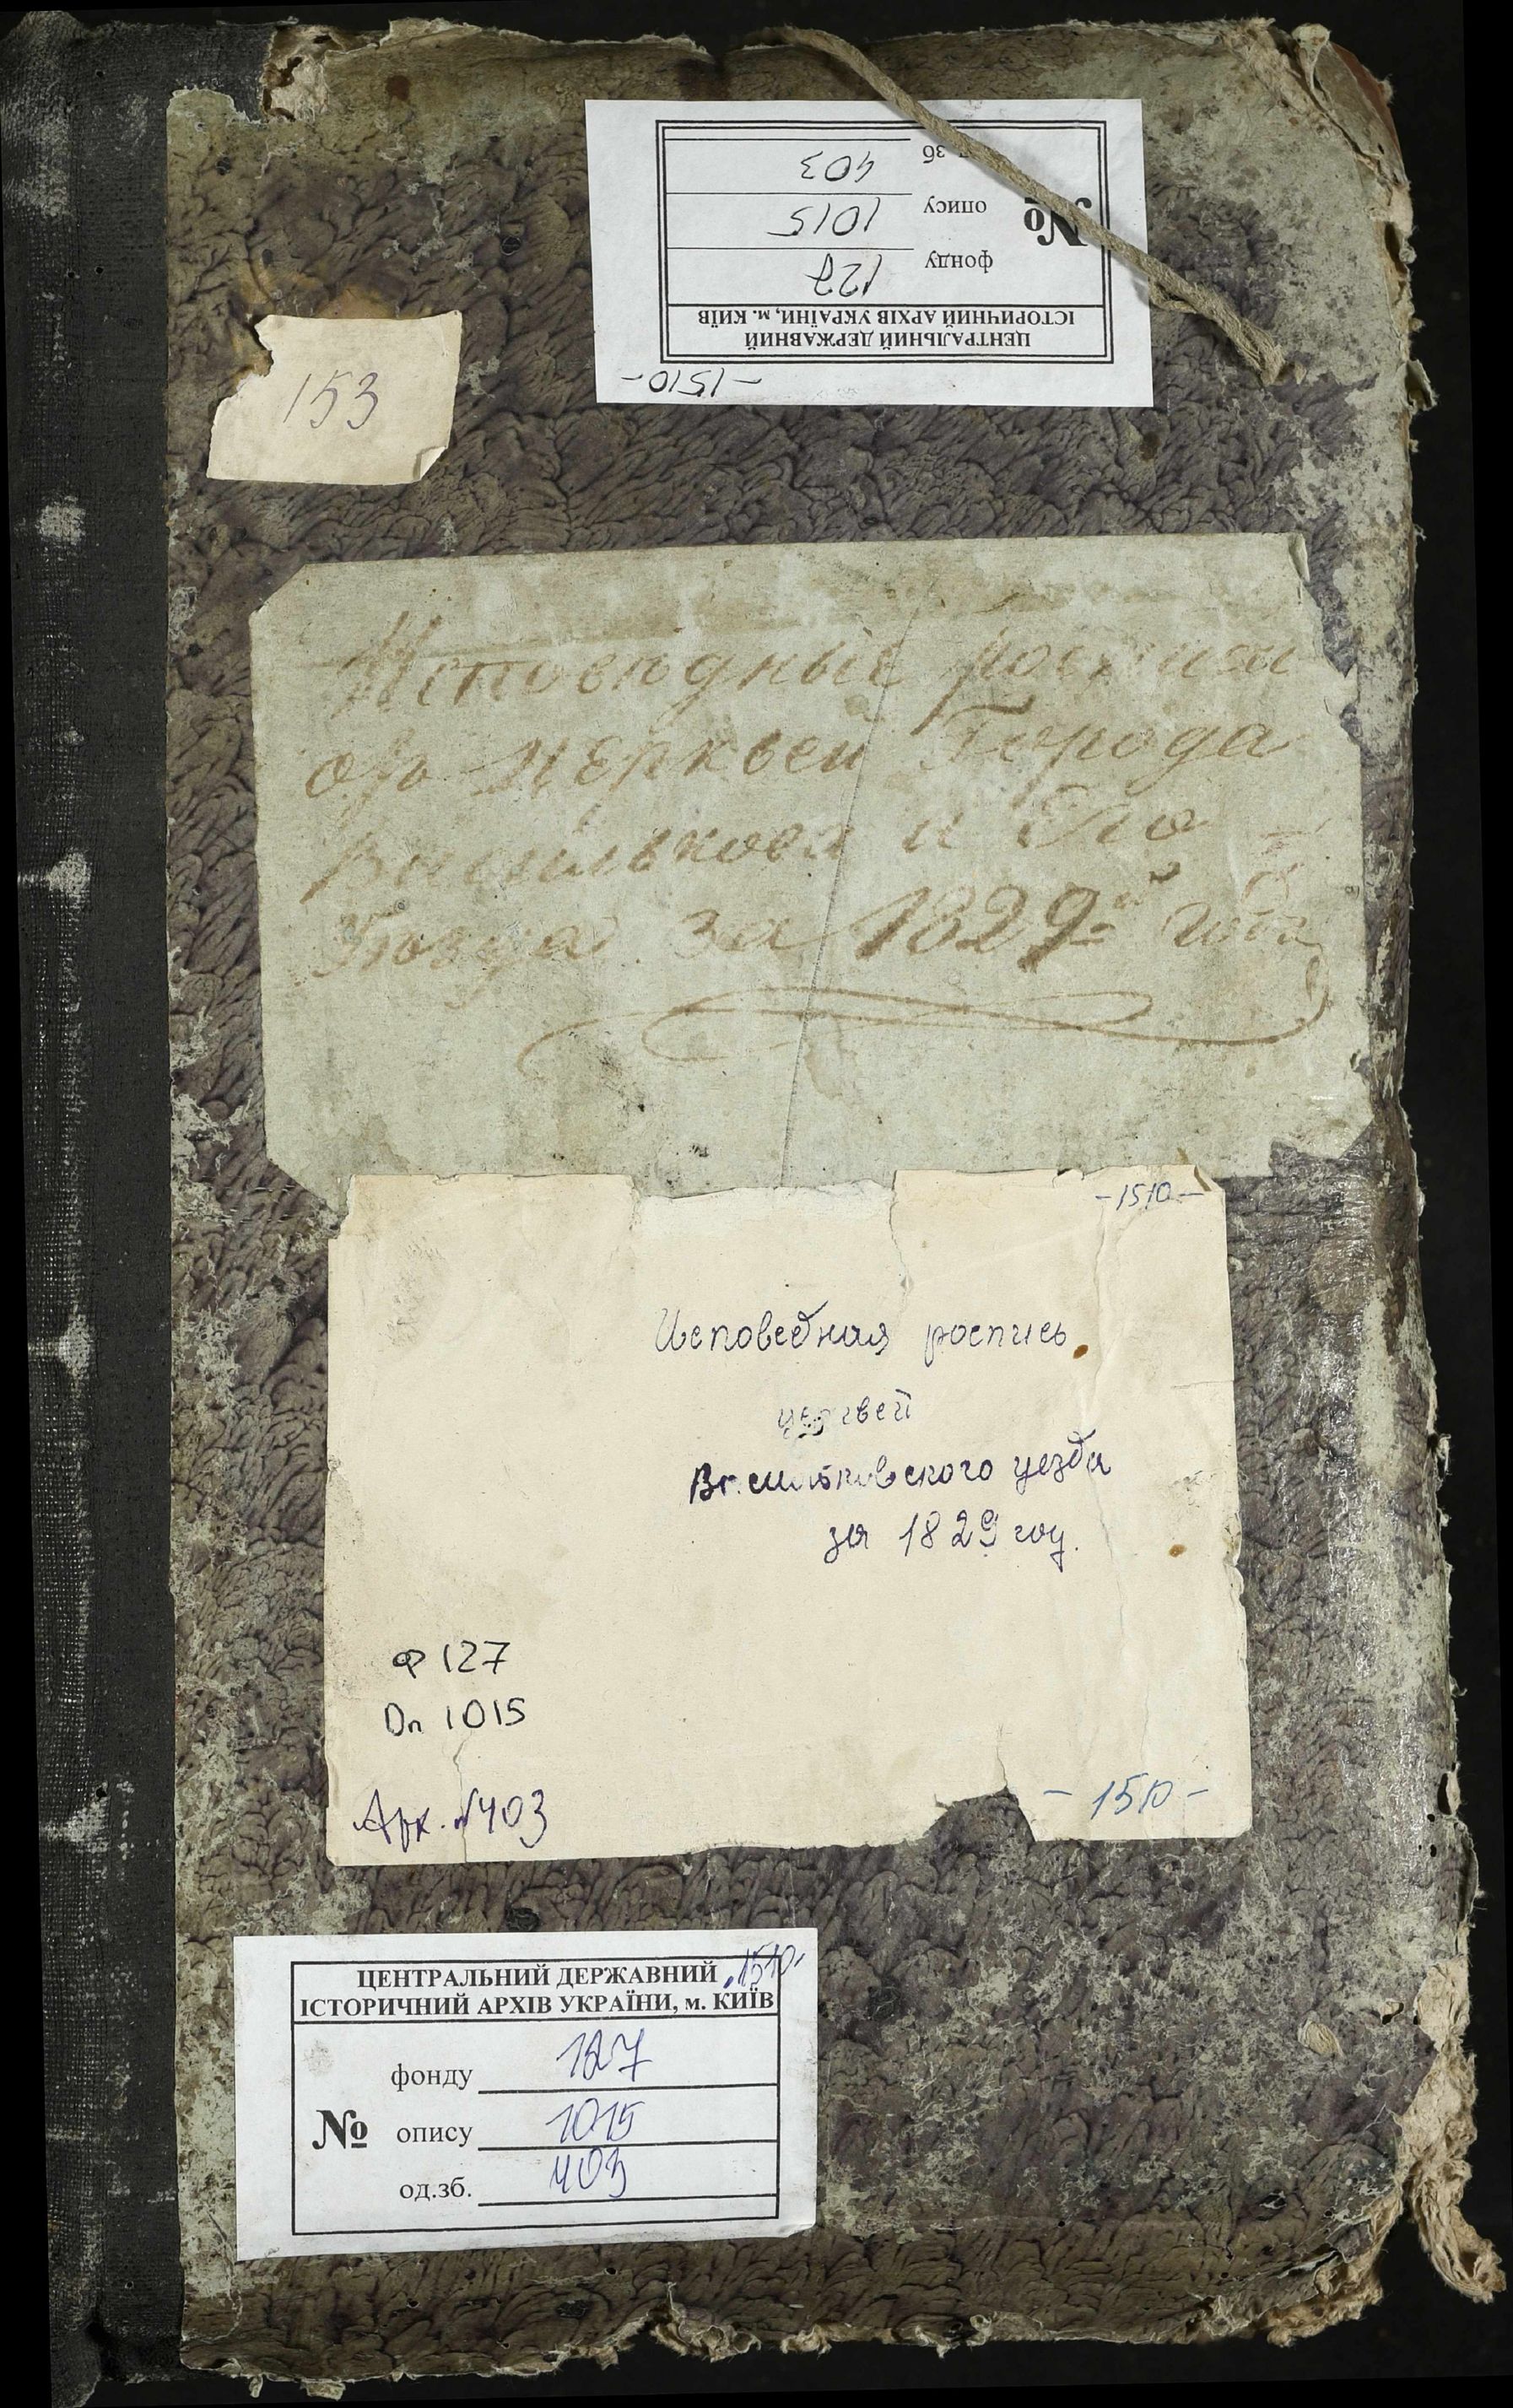 -1510-
ЦЕНТРАЛЬНИЙ ДЕРЖАВНИЙ
ІСТОРИЧНИЙ АРХІВ УКРАЇНИ, м. КИЇВ
№
фонду 127
опису 1015
зб 403
153
Исповѣдные росписи
Церквей Города
Василькова и Его
Уѣзда за 1829й годъ
-1510-
Исповедная роспись
церквей
Васильковского уезда
за 1829 год.
Ф 127
Оп 1015
Арх. №403
-1510-
ЦЕНТРАЛЬНИЙ ДЕРЖАВНИЙ -1510-
ІСТОРИЧНИЙ АРХІВ УКРАЇНИ, м. КИЇВ
фонду 127
№ опису 1015
од.зб. 403